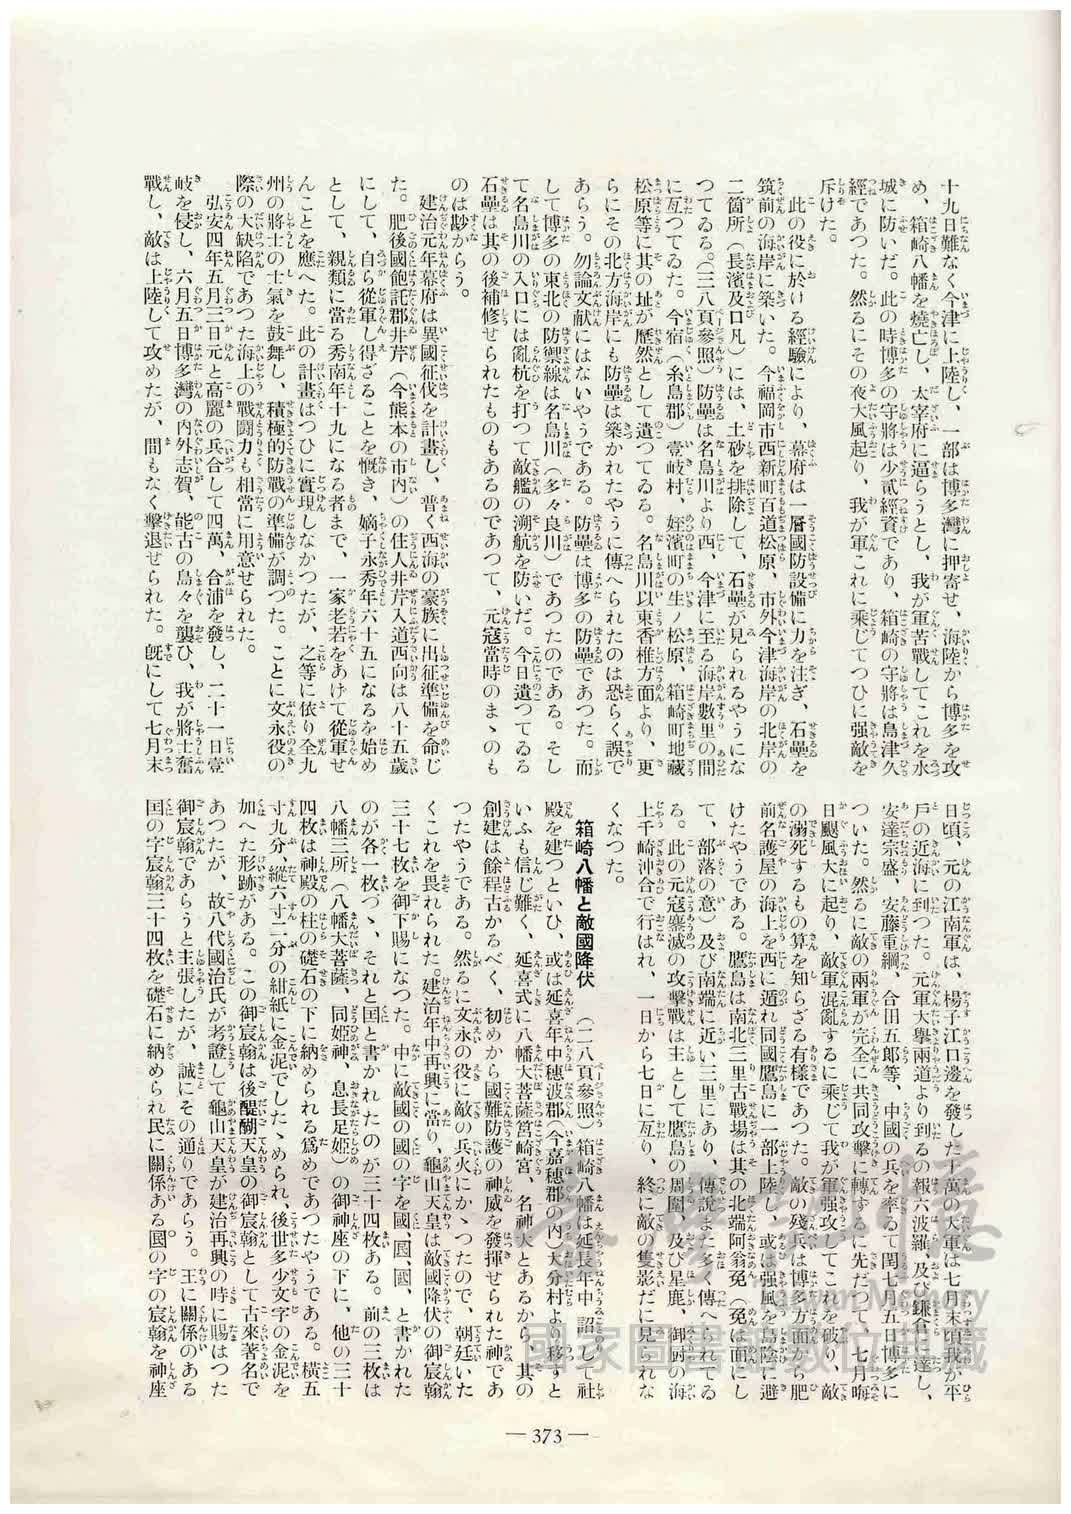 十九日難なく今津に上陸し、一部は博多灣に押寄せ、海陸から博多を攻
め、箱崎八幡を燒亡し、太宰府に逼らうとし、我が軍苦戰してこれを水
城に防いだ。此の時博多の守將は少貳經資であり、箱崎の守將は島津久
經であつた。然るにその夜大風起り、我が軍これに乘じてつひに强敵を
斥けた。
此の役に於ける經驗により、幕府は一層國防設備に力を注ぎ、石壘を
筑前の海岸に築いた。今福岡市西新町百道松原、市外今津海岸の北岸の
二箇所（長濱及口凡）には、土砂を排除して、石壘が見られるやうにな
つてゐる。（三八頁參照）防壘は名島川より西、今津に至る海岸數里の間
に亙つてゐた。今宿（糸島郡）壹岐村、姪濱町の生ノ松原、箱崎町地藏
松原等に其の址が歷然として遺つてゐる。名島川以東香椎方面より、更
らにその北方海岸にも防壘は築かれたやうに傳へられたのは恐らく誤で
あらう。勿論文獻にはないやうである。防壘は博多の防壘であつた。而
して博多の東北の防禦線は名島川（多々良川）であつたのである。そし
て名島川の入口には亂杭を打つて敵艦の溯航を防いだ。今日遺つてゐる
石壘は其の後補修せられたものもあるのであつて、元寇當時のまゝのも
のは尠からう。
建治元年幕府は異國征伐を計畫し、普く西海の豪族に出征準備を命じ
た。肥後國飽託郡井芹（今熊本の市内）の住人井芹入道西向は八十五歲
にして、自ら從軍し得ざることを慨き、嫡子永秀年六十五になるを始め
として、親類に當る秀南年十九になる者まで、一家老若をあげて從軍せ
んことを應へた。此の計畫はつひに實現しなかつたが、之等に依り全九
州の將士の士氣を鼓舞し、積極的防戰の準備が調つた。ことに文永役の
際の大缺陷であつた海上の戰鬪力も相當に用意せられた。
弘安四年五月三日元と高麗の兵合して四萬、合浦を發し、二十一日壹
岐を侵し、六月五日博多灣の内外志賀、能古の島々を襲ひ、我が將士奮
戰し、敵は上陸して攻めたが、間もなく擊退せられた。旣にして七月末
日頃、元の江南軍は、楊子江口邊を發した十萬の大軍は七月末頃我が平
戶の近海に到つた。元軍大擧兩道より到るの報六波羅、及び鎌倉に達し、
安達宗盛、安藤重綱、合田五郎等、中國の兵を率ゐて閏七月五日博多に
ついた。然るに敵の兩軍が完全に共同攻擊に轉ずるに先だつて、七月晦
日颶風大に起り、敵軍混亂するに乘じて我が軍强攻してこれを破り、敵
の溺死するもの算を知らざる有樣であつた。敵の殘兵は博多方面から肥
前名護屋の海上を西に遁れ同國鷹島に一部上陸し、或は强風を島陰に避
けたやうである。鷹島は南北三里古戰場は其の北端阿翁免（免は面にし
て、部落の意）及び南端に近い三里にあり、傳說また多く傳へられてゐ
る。此の元寇鏖滅の攻擊戰は主として鷹島の周圍、及び星鹿、御厨の海
上千崎沖合で行はれ、一日から七日に亙り、終に敵の隻影だに見られな
くなつた。
箱崎八幡と敵國降伏　（二八頁參照）箱崎八幡は延長年中　詔して社
殿を建つといひ、或は延喜年中穗波郡（今嘉穗郡の内）大分村より移すと
いふも信じ難く、延喜式に八幡大菩薩筥崎宮、名神大とあるから、其の
創建は餘程古かるべく、初めから國難防護の神威を發揮せられた神であ
つたやうである。然るに文永の役に敵の兵火にかゝつたので、朝廷いた
くこれを畏れられた。建治年中再興に當り、龜山天皇は敵國降伏の御宸翰
三十七枚を御下賜になつた。中に敵國の國の字を國、圀、囻、と書かれた
のが各一枚づゝ、それと囯と書かれたのが三十四枚ある。前の三枚は
八幡三所（八幡大菩薩、同姫神、息長足姫）の御神座の下に、他の三十
四枚は神殿の柱の礎石の下に納められる爲めであつたやうである。橫五
寸九分、縱六寸二分の紺紙に金泥でしたゝめられ、後世多少文字の金泥を
加へた形跡がある。この御宸翰は後醍醐天皇の御宸翰として古來著名で
あつたが、故八代國治氏が考證して龜山天皇が建治再興の時に賜はつた
御宸翰であらうと主張したが、誠にその通りであらう。王に關係のある
囯の字宸翰三十四枚を礎石に納められ民に關係ある囻の字の宸翰を神座
— 373 —
臺灣記憶
Taiwan Memory
國家圖書館數位典藏